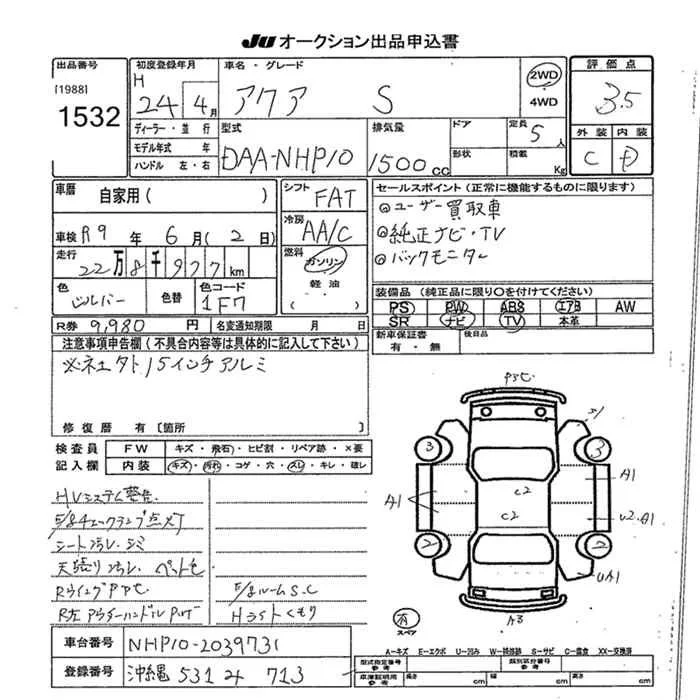 JU オークション出品申込書
出品番号
[1988]
1532
初度登録年月
H
24 4月
車名・グレード
アクア S
2WD
4WD
評価点
3.5
外装 内装
C D
ディーラー・並行
モデル年式 年
ハンドル 左・右
型式
DAA-NHP10
排気量
1500cc
ドア
形状
定員 5人
積載 Kg
車歴
自家用( )
車検 R9年 6月(2日)
走行
22万8千977km
色
シルバー
色替
色コード
1F7
シフト
FAT
冷房
AA/C
燃料
ガソリン
軽油
( )
セールスポイント(正常に機能するものに限ります)
◎ユーザー買取車
◎純正ナビ・TV
◎バックモニター
装備品(純正品に限り○を付けてください)
PS PW ABS エアB AW
SR ナビ TV 本革
新車保証書
有・無
後日品
R券 9,980円
名変通知期限 月 日
注意事項申告欄(不具合内容等は具体的に記入して下さい)
15インチアルミ
修復歴 有〔箇所 〕
検査員
記入欄
FW
キズ・飛石・ヒビ割・リペア跡・×要
内装
キズ・汚れ・コゲ・穴・スレ・キレ・破レ
HVシステム警告
シート汚レ・シミ
天張り汚レ ペット毛
Hライトくもり
車台番号 NHP10-2039731
登録番号 沖縄 531 713
S1
3
3
A1
A1
C2
C2
U2・A1
2
2
UA1
A3
有
スペア
A―キズ E―エクボ U―凹み W―補修跡 S―サビ C―腐食 XX―交換済
型式指定番号
参考
類別区分番号
参考
車庫証明用
参考
長さ cm 幅 cm 高さ cm